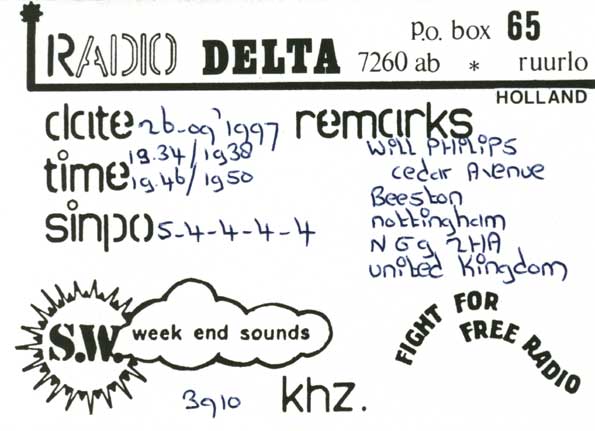 RADIO DELTA p.o. box 65
7260 ab * ruurlo
HOLLAND
date 26-09'1997 remarks
time 19.34/1938
19.46/1950
sinpo 5-4-4-4-4
Will PHiLiPS
cedar Avenue
Beeston
nottingham
NG9 2HA
united Kingdom
S.W. week end sounds
3910 khz.
FIGHT FOR
FREE RADIO